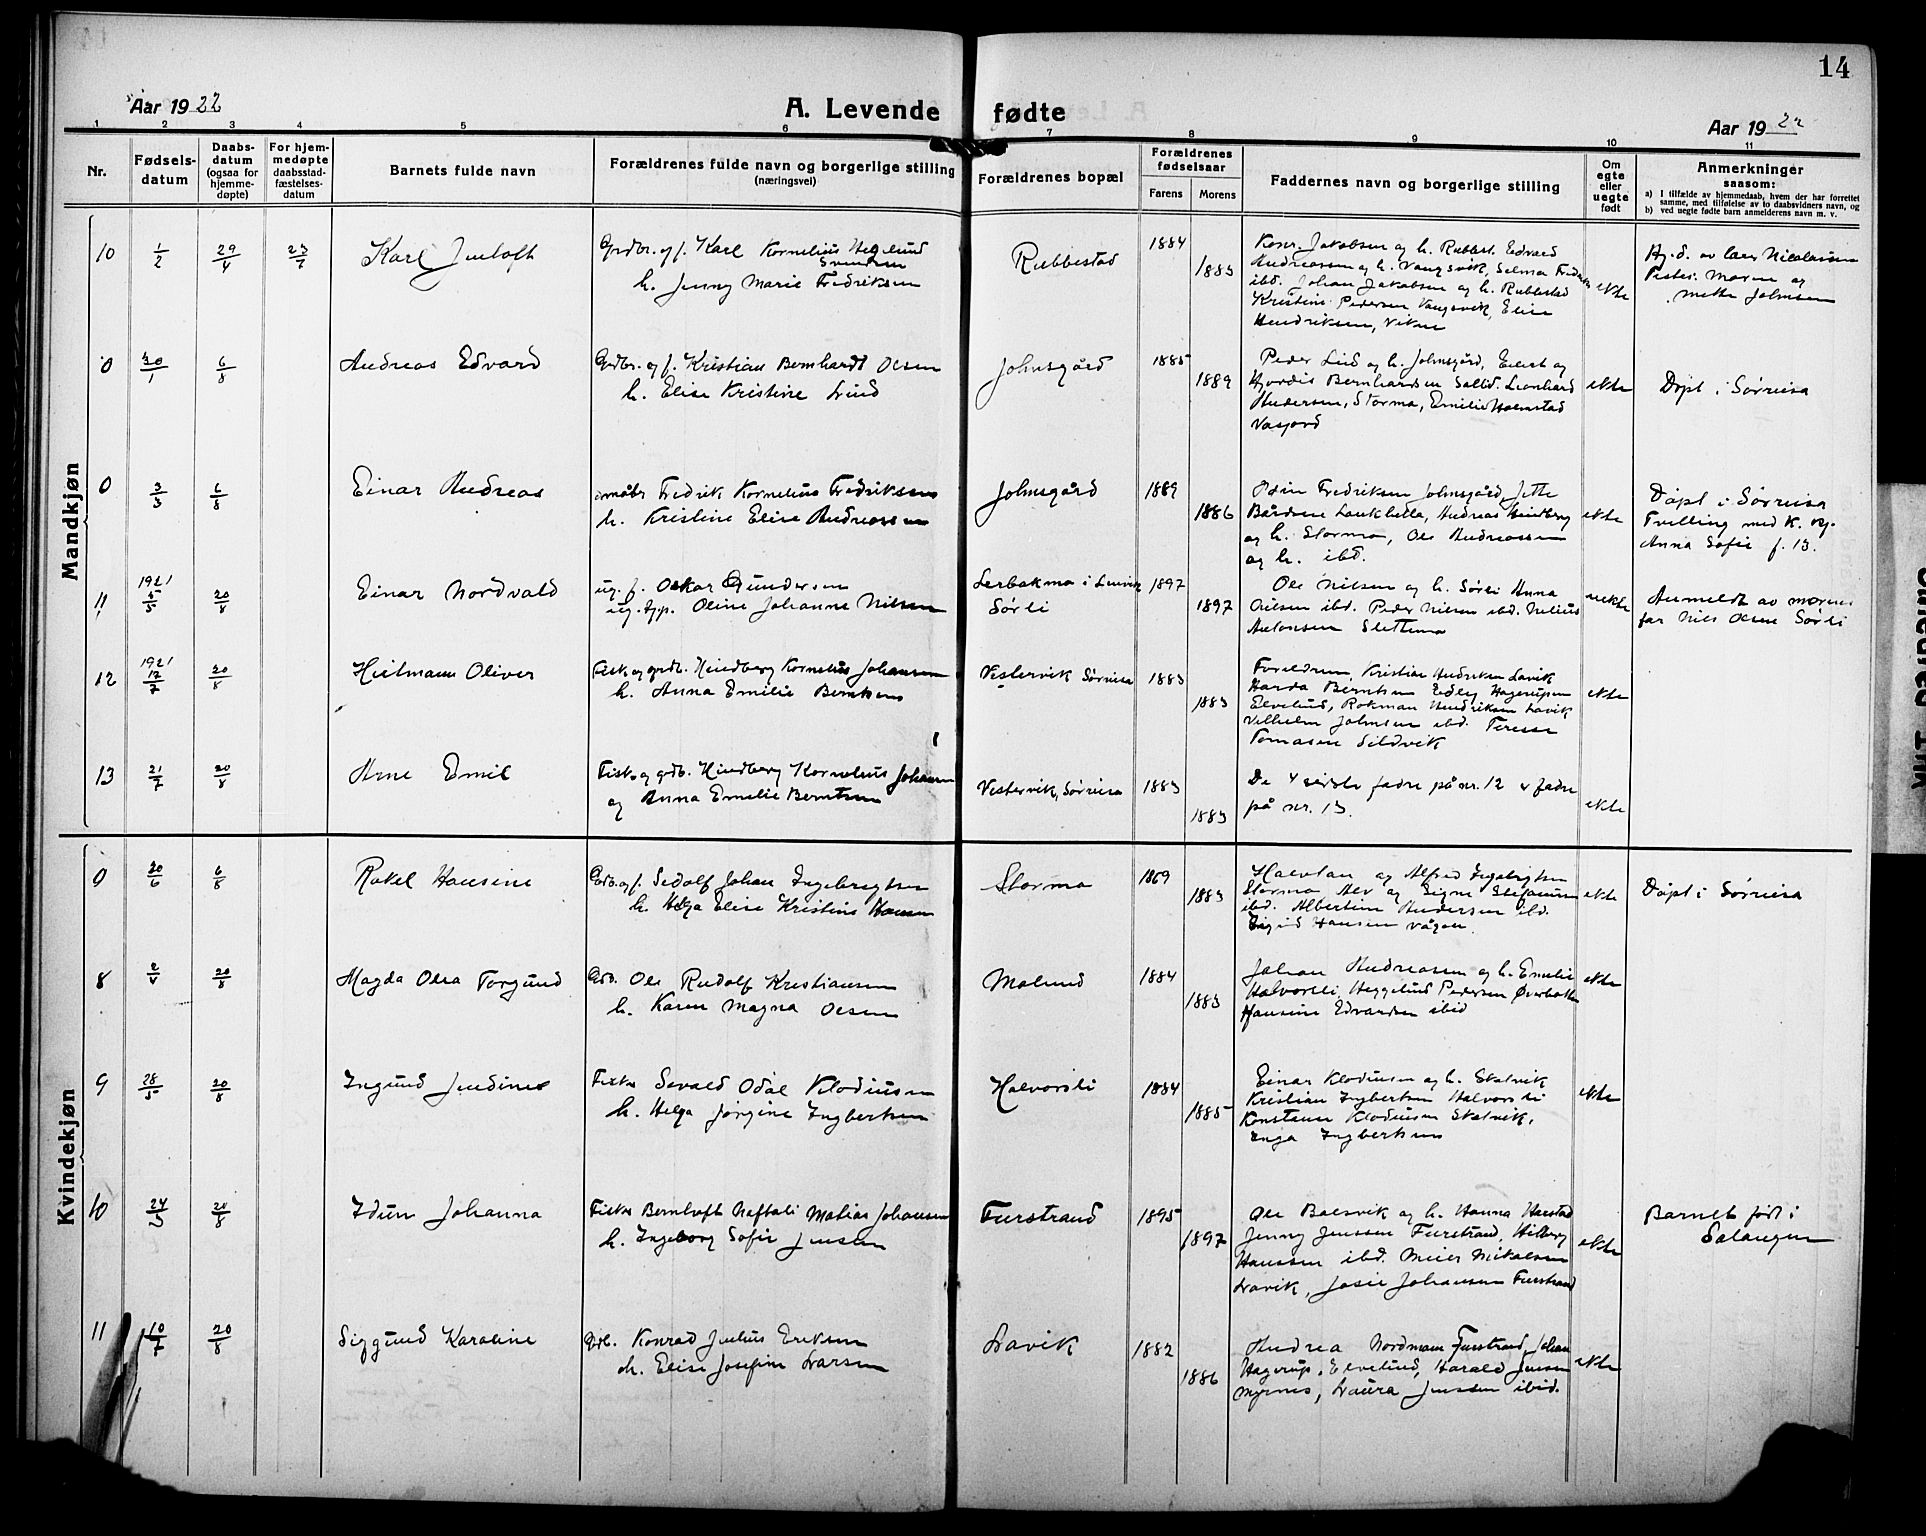 14
Aar 1922
A. Levende fødte
Aar 1922
1 2 3 4 5 6 7 8 9 10 11
Nr.
Fødsels-
datum
Daabs-
datum
(ogsaa for
hjemme-
døpte)
For hjem-
medøpte
daabsstad-
fæstelses-
datum
Barnets fulde navn
Forældrenes fulde navn og borgerlige stilling
(næringsvei)
Forældrenes bopæl
Forældrenes
fødselsaar
Farens Morens
Faddernes navn og borgerlige stilling
Om
egte
eller
uegte
født
Anmerkninger
saasom:
a) I tilfælde av hjemmedaab, hvem der har forrettet
samme, med tilføielse av to daabsvidners navn, og
b) ved uegte fødte barn anmelderens navn m. v.
Mandkjøn
10 1/2 29/4 Karl
Karl Kornelius Hegelund
Svendsen
h. Jenny Marie Fredriksen
Rubbestad
1884
1883
Konr. Jakobsen og h. Rubbest. Edvard
Andreassen og h. Vangsvik, Selma
ibd. Johan Jakobsen og h. Rubbestad
Kristine Pedersen Vangsvik, Elise
Hendriksen,
ekte
Hj.d. av Nicolaisen
Maren og
Mette Johnsen
0 30/1 6/8 Andreas Edvard
Grdbr. og f. Kristian Bernhardt Olsen
h. Elise Kristine Lind
Johnsgård
1885
1889
Peder Lind og h. Johnsgård, og
Hjordis Bernhardsen Leonhard
Andersen, Storma, Emilie Holmstad
ekte
Døpt i Sørreisa
0 3/3 6/8 Einar Andreas
Fredrik Kornelius Fredriksen
h. Kristine Elise Andreassen
Johnsgård
1889
1886
Fredriksen Johnsgård, Jette
Bårdsen Andreas Hindberg
og h. Storma, Ole Andreassen
og h. ibd.
ekte
Døpt i Sørreisa
Tvilling med K. kj.
Anna Sofie f. 13.
11 1921 20/8 Einar Nordvald
ug. f. Oskar Gundersen
ug. Oline Johanne Nilsen
i Lenvik
Sørli
1897
1897
Ole Nilsen og h. Sørli Anna
Nilsen ibd. Peder Nilsen ibd. Nelius
Antonsen
uekte
Anmeldt av morens
far Nils Olsen Sørli
12 1921 17/7 20/8 Hilmann Oliver
Fisk. og grdb. Hindberg Kornelius Johansen
h. Anna Emilie Berntsen
Vestervik Sørreisa
1883
1883
Foreldrene, Kristian Hendriksen Lavik
Harda Berntsen Edley Hagerupsen
Elvelund, Rokman Hendriksen Lavik
Vilhelm Johnsen ibd. Terese
Tomasen Sildvik
ekte
13 21/7 20/8 Arne Emil
Fisk. og grdb. Hindberg Kornelius Johansen
og Anna Emilie Berntsen
Vestervik, Sørreisa
1883
1883
De 4 sidste fadre på nr. 12 er fadre
på nr. 13.
ekte
Kvindekjøn
0 20/6 6/8 Rakel Hansine
Grdb. og f. Sedolf Johan Ingebrigtsen
h. Helga Elise Kristine Hansen
Storma
1869
1883
Halvdan og Alfred Ingebrigtsen
Storma Alv og Signe Stefanussen
ibd. Albertine Andersen ibd.
Ingrid Hansen Vågan
ekte
Døpt i Sørreisa
8 2/4 20/8 Magda Olea Torgund
Grdb. Ole Rudolf Kristiansen
h. Karen Magna Olsen
Molund
1884
1883
Johan Andreassen og h. Emelie
Halvorsli, Heggelund Pedersen
Hansine Edvardsen ibid
ekte
9 28/5 20/8 Ingund Jendine
Fisker Sevald Odal Klodiussen
h. Helga Jørgine Ingbertsen
Halvorsli
1884
1885
Einar Klodiussen og h. Skatvik
Kristian Ingbertsen Halvorsli
Konstanse Klodiussen Skatvik,
Inga Ingbertsen
ekte
10 20/8 Idun Johanna
Fisker Bernhoft Naftali Matias Johansen
h. Ingeborg Sofie Jensen
Furstrand
1895
1897
Ole Balsvik og h. Hanna Harstad
Jenny Jenssen Furstrand, Hilberg
Hanssen ibd. Meier Mikalsen
Lavik, Josie Johansen Furstrand
ekte
Barnet født i
Salangen
11 10/7 20/8 Siggund Karoline
Grdb. Konrad Julius Eriksen
h. Elise Josefine Larsen
Lavik
1882
1886
Andrea Nordmann Furstrand, Johan
Hagerup, Elvelund, Harald Jensen
Myrnes, Laura Jenssen ibid.
ekte